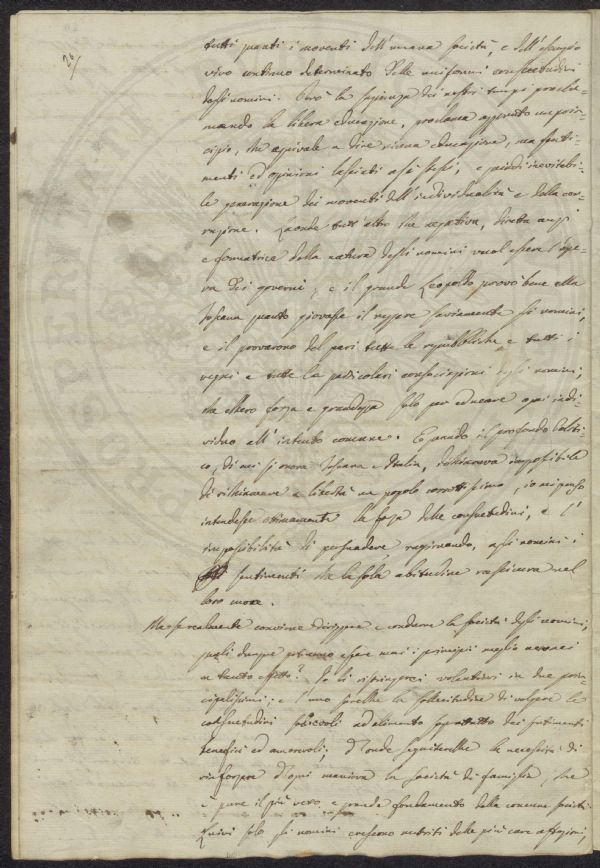 26/
tutti quanti i moventi dell'umana società, e dell'esempio
vivo continuo determinato delle uniformi consuetudini
degli uomini. Però la sapienza dei nostri tempi procla-
mando la libera educazione, proclama appunto un prin-
cipio, che equivale a dire niuna educazione, ma senti-
menti ed opinioni lasciati a sé stessi, e quindi inevitabi-
le generazione dei moventi dell'individualità e della cor-
ruzione. Laonde tutt'altro che negativa, diretta anzi
e formatrice della natura degli uomini vuol essere l'ope-
ra dei governi; e il grande Leopoldo provò bene alla
Toscana quanto giovasse il reggere saviamente gli uomini,
e il provarono del pari tutte le repubbliche e tutti i
regni e tutte le particolari consociazioni degli uomini,
che ebbero forza e grandezza solo per educare ogni indi-
viduo all'intento comune. E quando il profondo Politi-
co, di cui si onora Toscana e Italia, dichiarava impossibile
di richiamare a libertà un popolo corrottissimo, io mi penso
intendesse ottimamente la forza delle consuetudini, e l'
impossibilità di persuadere, ragionando, agli uomini i
sentimenti che la sola abitudine rassicura nel
loro cuore.
Ma se realmente conviene dirigere e condurre la società degli uomini,
quali dunque potranno essere mai i principii meglio necessari
a tanto effetto? Io li ristringerei volentieri in due prin-
cipalissimi; e l'uno sarebbe la sollecitudine di volgere le
consuetudini ad alimento soprattutto dei sentimenti
benefici ed amorevoli; d'onde seguiterebbe la necessità di
rinforzare d'ogni maniera la società di famiglia, che
è pure il più vero, e grande fondamento della comune società.
Quivi solo gli uomini crescono nutriti delle più care affezioni,